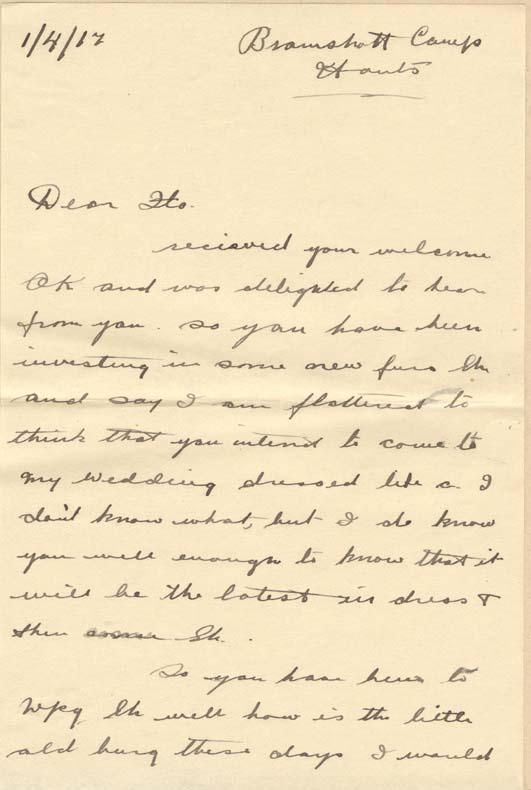 1/4/17 Bramshott Camp
Hants
Dear Flo.
recieved your welcome
OK and was delighted to hear
from you. so you have been
investing in some new furs Eh
and say I am flattered to
think that you intend to come to
my wedding dressed like a. I
don't know what, but I do know
you well enough to know that it
will be the latest in dress &
then some Eh.
So you have been to
Wpg Eh well how is the little
old burg these days I would